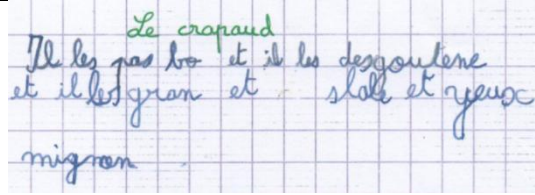 Le crapaud
Il les pas bo et il les desgoutene
et il les gran et slale et yeux
mignon